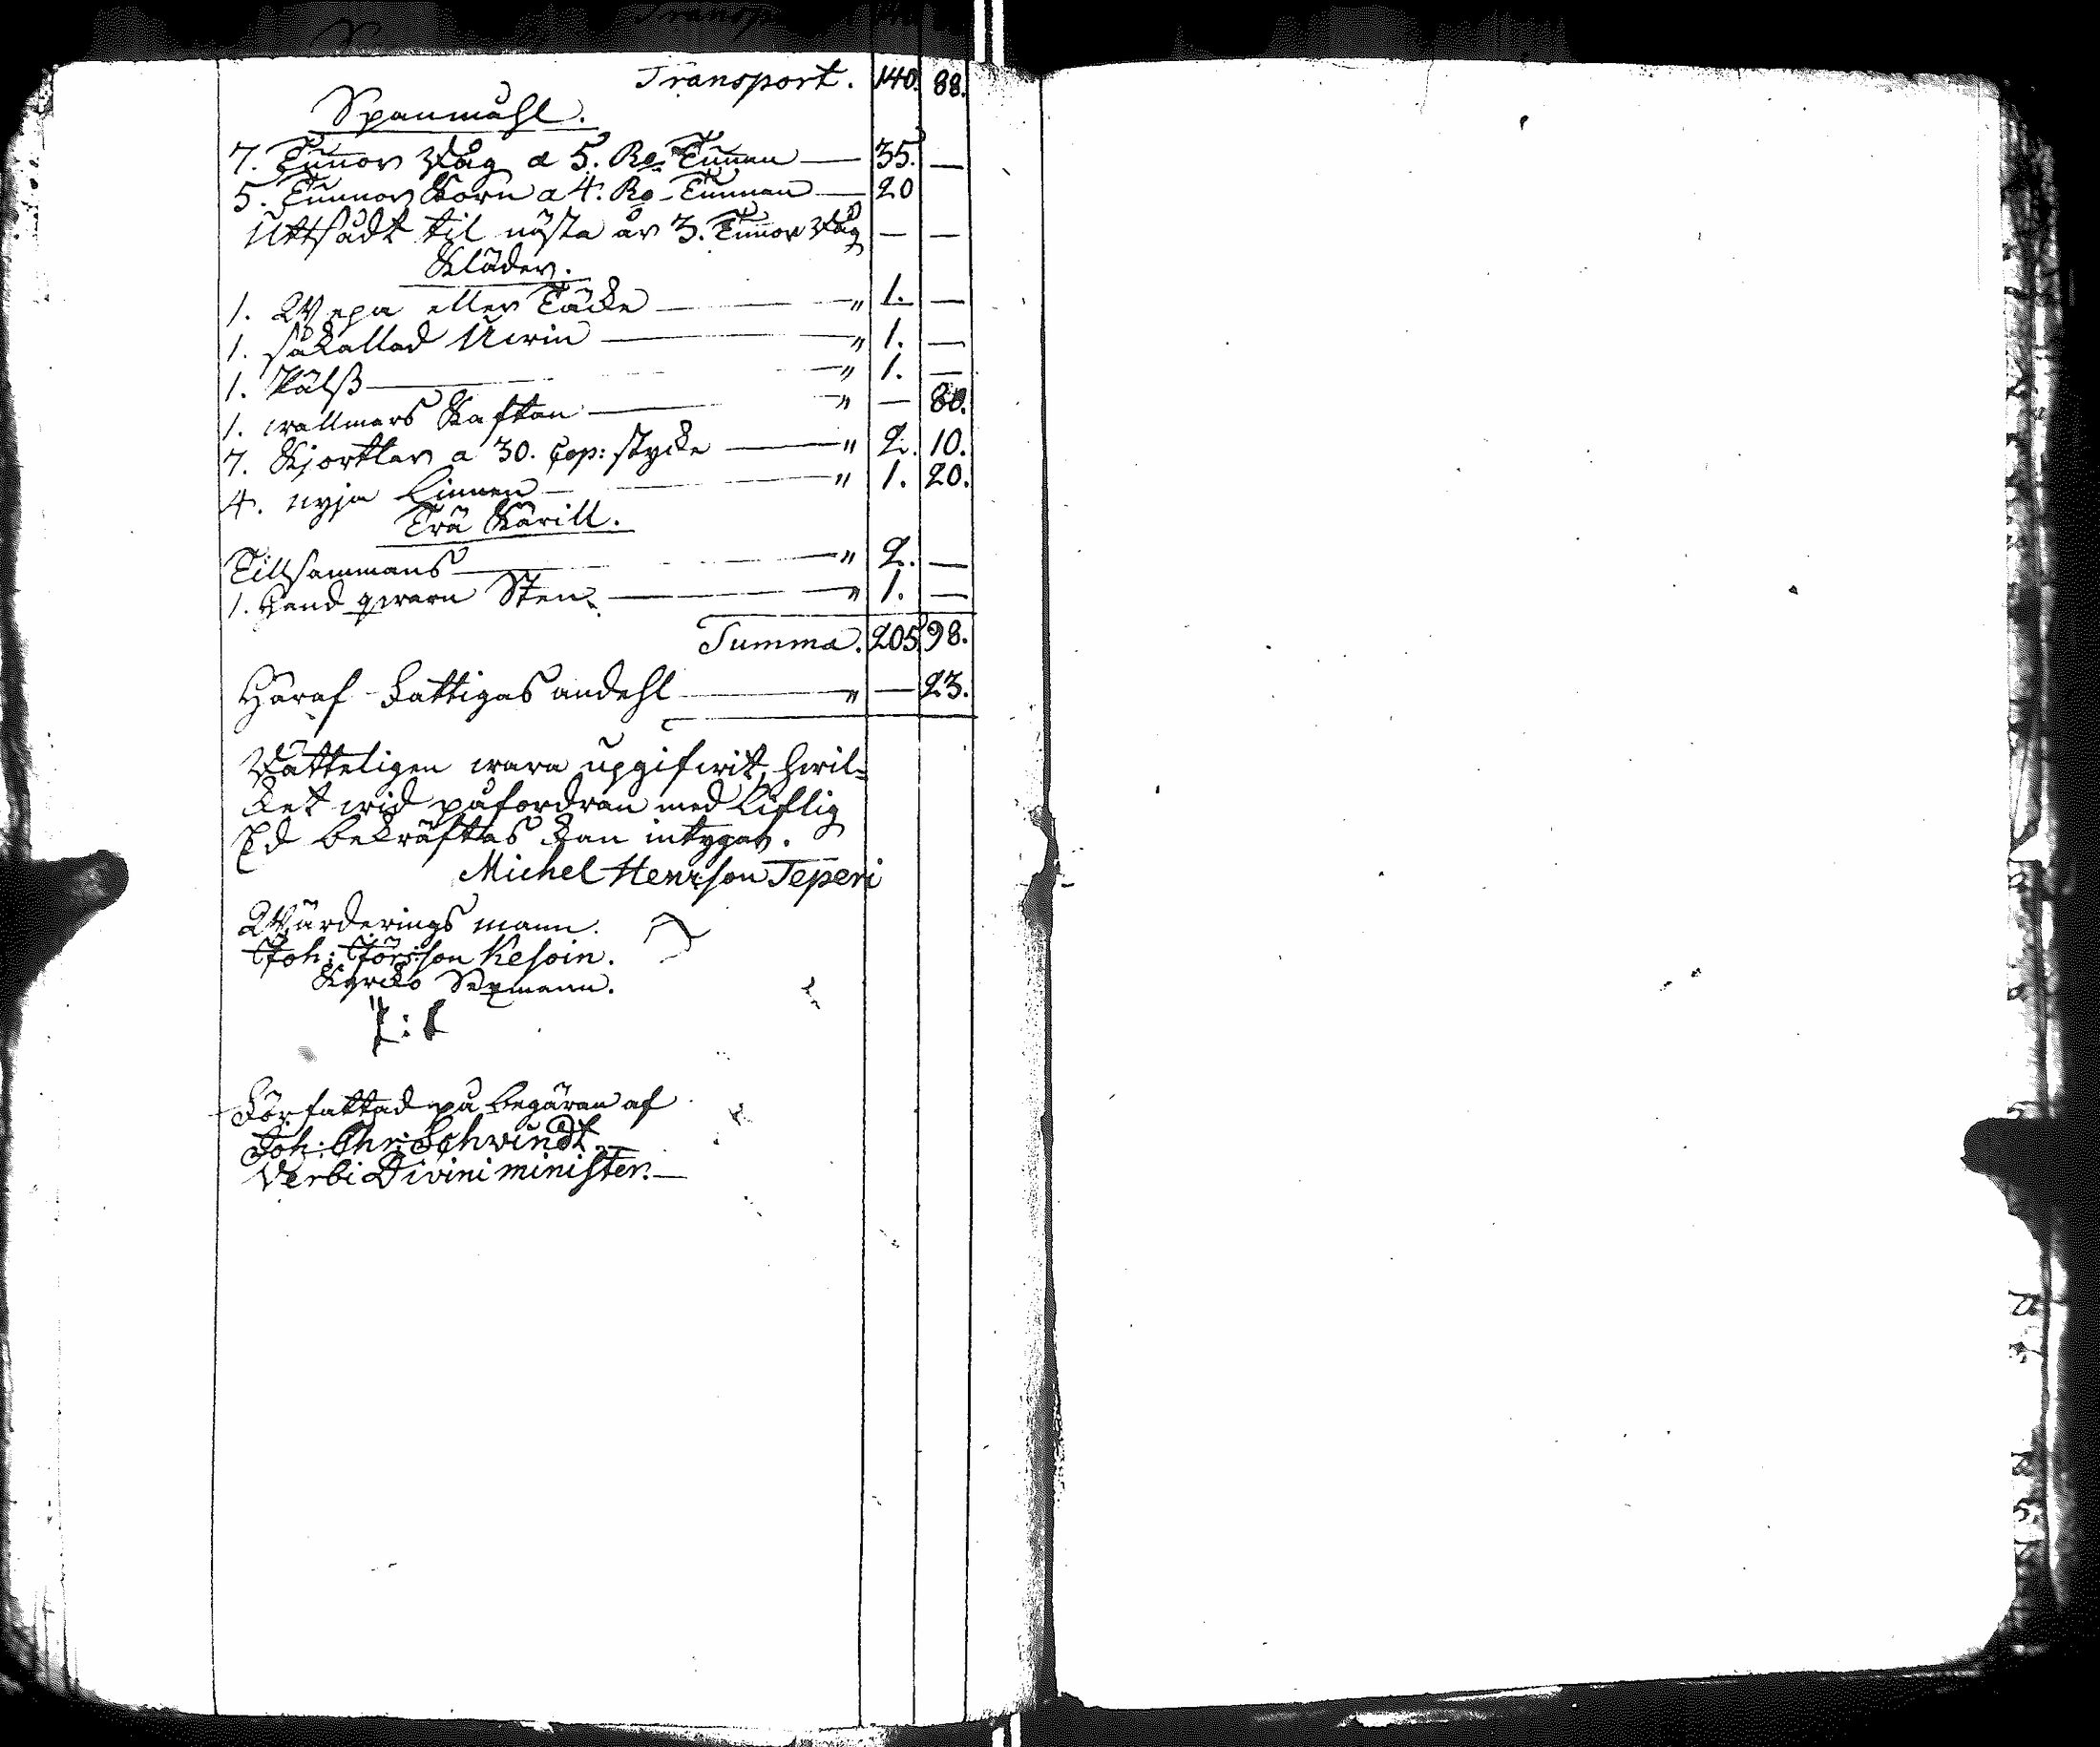 Transport. 140. 88.
Spanmåhl.
7. Tunnor Råg a 5. Ro Tunnan — 35. —
5. Tunnor Korn a 4. Ro Tunnan — 20
Uttsådt til nästa år 3. Tunnor Råg — —
Kläder.
1. Wepa eller Täcke — " 1. —
1. såkallad — " 1. —
1. Pälss — " 1. —
1. wallmars Kaftan — " — 80.
7. Skjortlar a 30. Cop: stycke — " 2. 10.
4. nyja Linnen — " 1. 20.
Trä Kärill.
Tillsammans — " 2. —
1. Hand qwarn Sten — " 1. —
Summa. 205 98.
Häraf Fattigas andehl — " — 23.
Rätteligen wara upgifwit, hwil=
ket wid påfordran med Liflig
Ed bekräftas kan intygar.
Michel Henrsson Teperi
Wärderings mann.
Joh: Jörsson Kesoin.
Kyrcko Sexmann.
Författad på begäran af
Joh: Chr: Schwindt
Verbi Divini minister. —